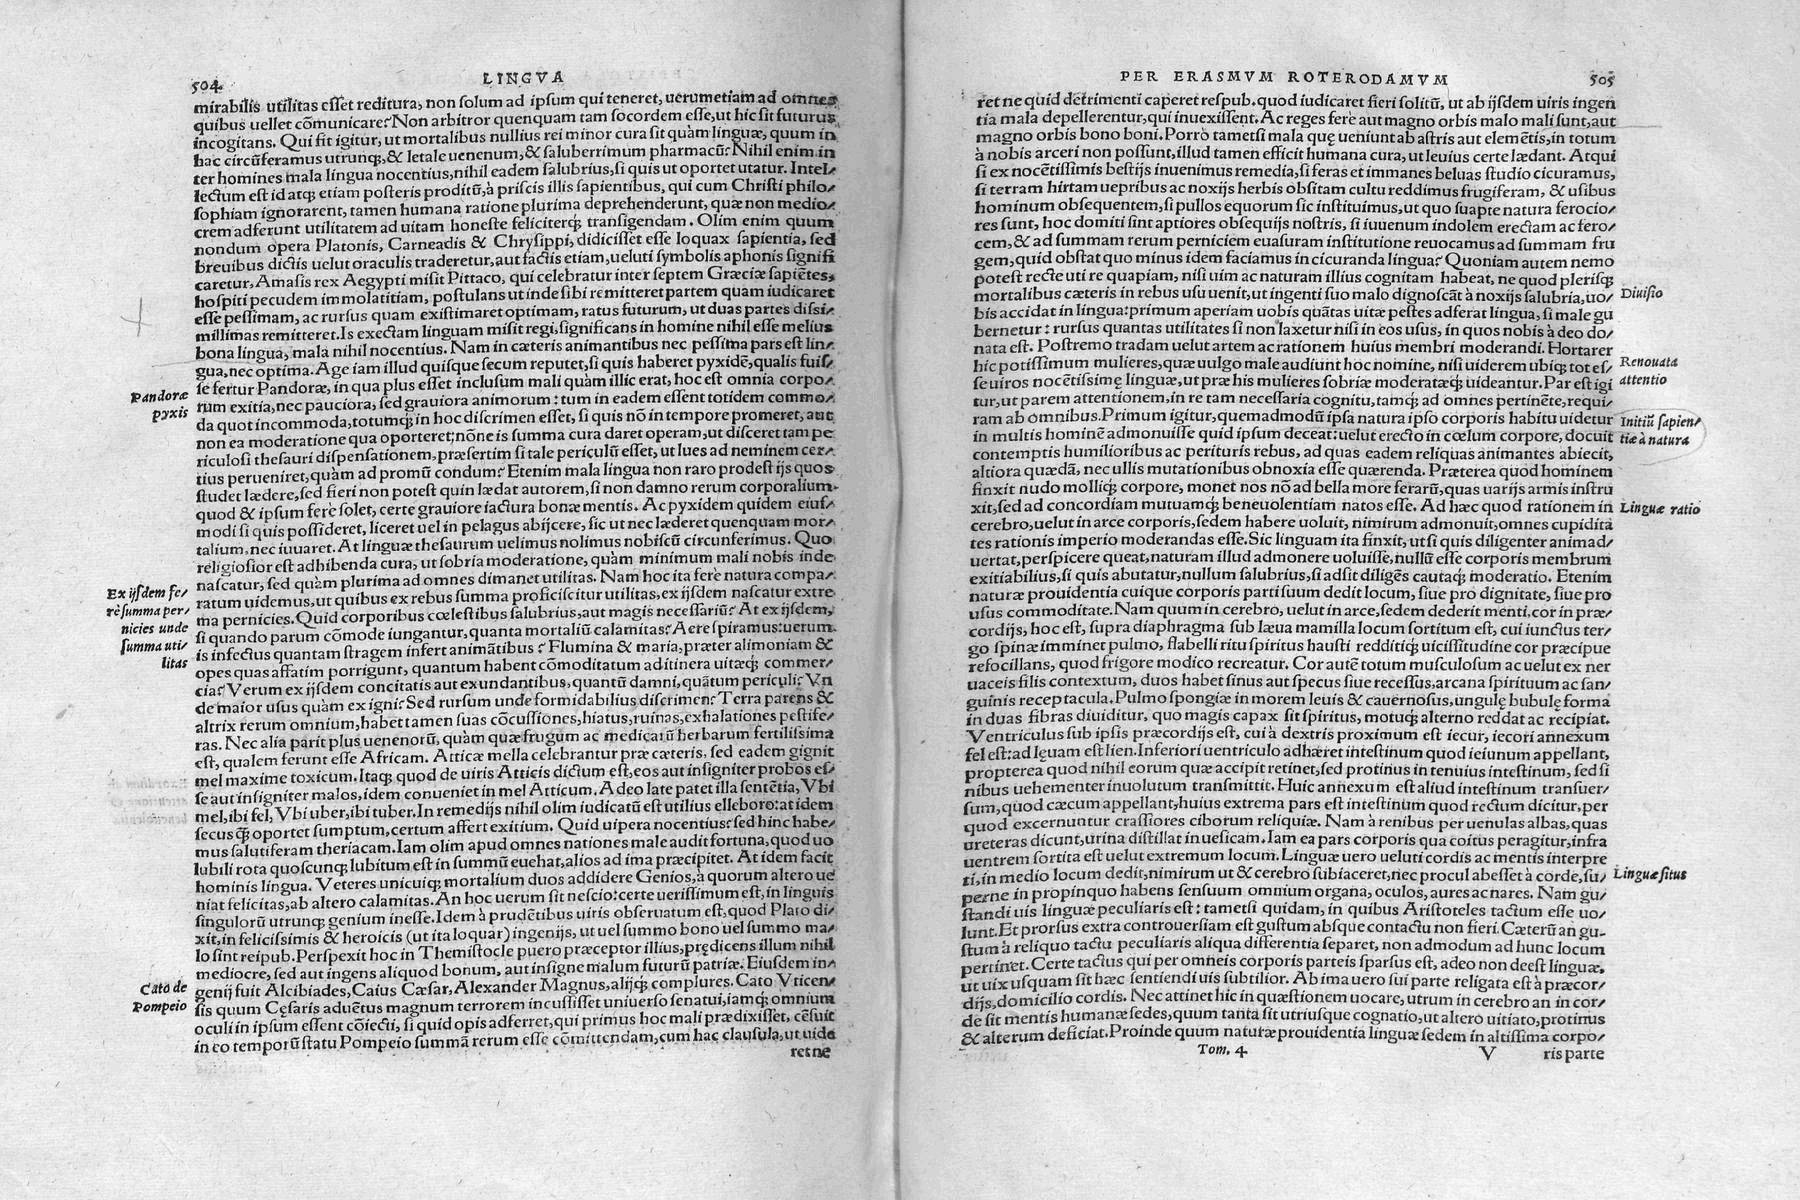 504 LINGVA
mirabilis utilitas esset reditura, non solum ad ipsum qui teneret, uerumetiam ad omnes
quibus uellet cōmunicare? Non arbitror quenquam tam socordem esse, ut hic sit futurus
incogitans. Qui fit igitur, ut mortalibus nullius rei minor cura sit quàm linguæ, quum in
hac circūferamus utrunq;, & letale uenenum, & saluberrimum pharmacū? Nihil enim in
ter homines mala lingua nocentius, nihil eadem salubrius, si quis ut oportet utatur. Intel-
lectum est id atq; etiam posteris proditū, à priscis illis sapientibus, qui cum Christi philo-
sophiam ignorarent, tamen humana ratione plurima deprehenderunt, quæ non medio-
crem adferunt utilitatem ad uitam honeste feliciterq; transigendam. Olim enim quum
nondum opera Platonis, Carneadis & Chrysippi, didicisset esse loquax sapientia, sed
breuibus dictis uelut oraculis traderetur, aut factis etiam, ueluti symbolis aphonis signifi
caretur, Amasis rex Aegypti misit Pittaco, qui celebratur inter septem Græciæ sapiētes,
hospiti pecudem immolatitiam, postulans ut inde sibi remitteret partem quam iudicaret
esse pessimam, ac rursus quam existimaret optimam, ratus futurum, ut duas partes dissi-
millimas remitteret. Is exectam linguam misit regi, significans in homine nihil esse melius
bona lingua, mala nihil nocentius. Nam in cæteris animantibus nec pessima pars est lin-
gua, nec optima. Age iam illud quisque secum reputet, si quis haberet pyxidē, qualis fuis-
se fertur Pandoræ, in qua plus esset inclusum mali quàm illic erat, hoc est omnia corpo-
Pandoræ
pyxis
rum exitia, nec pauciora, sed grauiora animorum: tum in eadem essent totidem commo-
da quot incommoda, totumq; in hoc discrimen esset, si quis nō in tempore promeret, aut
non ea moderatione qua oporteret; nōne is summa cura daret operam, ut disceret tam pe
riculosi thesauri dispensationem, præsertim si tale periculū esset, ut lues ad neminem cer-
tius perueniret, quàm ad promū condum? Etenim mala lingua non raro prodest ijs quos
studet lædere, sed fieri non potest quin lædat autorem, si non damno rerum corporalium
quod & ipsum ferè solet, certe grauiore iactura bonæ mentis. Ac pyxidem quidem eius-
modi si quis possideret, liceret uel in pelagus abijcere, sic ut nec læderet quenquam mor-
talium, nec iuuaret. At linguæ thesaurum uelimus nolimus nobiscū circunferimus. Quo
religiosior est adhibenda cura, ut sobria moderatione, quàm minimum mali nobis inde
nascatur, sed quàm plurima ad omnes dimanet utilitas. Nam hoc ita ferè natura compa-
Ex ijsdem fe-
rè summa per-
nicies unde
summa uti-
litas
ratum uidemus, ut quibus ex rebus summa proficiscitur utilitas, ex ijsdem nascatur extre
ma pernicies. Quid corporibus cœlestibus salubrius, aut magis necessariū? At ex ijsdem,
si quando parum cōmode iungantur, quanta mortaliū calamitas? Aere spiramus: uerum
is infectus quantam stragem infert animātibus? Flumina & maria, præter alimoniam &
opes quas affatim porrigunt, quantum habent cōmoditatum ad itinera uitæq; commer-
cia? Verum ex ijsdem concitatis aut exundantibus, quantū damni, quātum periculi? Vn
de maior usus quàm ex igni? Sed rursum unde formidabilius discrimen? Terra parens &
altrix rerum omnium, habet tamen suas cōcussiones, hiatus, ruinas, exhalationes pestife-
ras. Nec alia parit plus uenenorū, quàm quæ frugum ac medicarū herbarum fertilissima
est, qualem ferunt esse Africam. Atticæ mella celebrantur præ cæteris, sed eadem gignit
mel maxime toxicum. Itaq; quod de uiris Atticis dictum est, eos aut insigniter probos es-
se aut insigniter malos, idem conueniet in mel Atticum. Adeo late patet illa sentētia, Vbi
mel, ibi fel, Vbi uber, ibi tuber. In remedijs nihil olim iudicatū est utilius elleboro: at idem
secus q̄; oportet sumptum, certum affert exitium. Quid uipera nocentius? sed hinc habe-
mus salutiferam theriacam. Iam olim apud omnes nationes male audit fortuna, quod uo
lubili rota quoscunq; lubitum est in summū euehat, alios ad ima præcipitet. At idem facit
hominis lingua. Veteres unicuiq; mortalium duos addidere Genios, à quorum altero ue
niat felicitas, ab altero calamitas. An hoc uerum sit nescio: certe uerissimum est, in linguis
singulorū utrunq; genium inesse. Idem à prudētibus uiris obseruatum est, quod Plato di-
xit, in felicissimis & heroicis (ut ita loquar) ingenijs, ut uel summo bono uel summo ma-
lo sint reipub. Perspexit hoc in Themistocle puero præceptor illius, prędicens illum nihil
mediocre, sed aut ingens aliquod bonum, aut insigne malum futurū patriæ. Eiusdem in-
genij fuit Alcibiades, Caius Cæsar, Alexander Magnus, alijq; complures. Cato Vticen-
Cato de
Pompeio
sis quum Cęsaris aduētus magnum terrorem incussisset uniuerso senatui, iamq; omnium
oculi in ipsum essent cōiecti, si quid opis adferret, qui primus hoc mali prædixisset, cēsuit
in eo temporū statu Pompeio summā rerum esse cōmittendam, cum hac clausula, ut uide
ret ne
PER ERASMVM ROTERODAMVM 505
ret ne quid detrimenti caperet respub. quod iudicaret fieri solitū, ut ab ijsdem uiris ingen
tia mala depellerentur, qui inuexissent. Ac reges ferè aut magno orbis malo mali sunt, aut
magno orbis bono boni. Porrò tametsi mala quę ueniunt ab astris aut elemētis, in totum
à nobis arceri non possunt, illud tamen efficit humana cura, ut leuius certe lædant. Atqui
si ex nocētissimis bestijs inuenimus remedia, si feras et immanes beluas studio cicuramus,
si terram hirtam uepribus ac noxijs herbis obsitam cultu reddimus frugiferam, & usibus
hominum obsequentem, si pullos equorum sic instituimus, ut quo suapte natura ferocio-
res sunt, hoc domiti sint aptiores obsequijs nostris, si iuuenum indolem erectam ac fero-
cem, & ad summam rerum perniciem euasuram institutione reuocamus ad summam fru
gem, quid obstat quo minus idem faciamus in cicuranda lingua? Quoniam autem nemo
potest recte uti re quapiam, nisi uim ac naturam illius cognitam habeat, ne quod plerisq;
mortalibus cæteris in rebus usu uenit, ut ingenti suo malo dignoscāt à noxijs salubria, uo- Diuisio
bis accidat in lingua: primum aperiam uobis quātas uitæ pestes adferat lingua, si male gu
bernetur: rursus quantas utilitates si non laxetur nisi in eos usus, in quos nobis à deo do-
nata est. Postremo tradam uelut artem ac rationem huius membri moderandi. Hortarer
hic potissimum mulieres, quæ uulgo male audiunt hoc nomine, nisi uiderem ubiq; tot es- Renouata
se uiros nocētissimę linguæ, ut præ his mulieres sobriæ moderatæq; uideantur. Par est igi attentio
tur, ut parem attentionem, in re tam necessaria cognitu, tamq; ad omnes pertinēte, requi-
ram ab omnibus. Primum igitur, quemadmodū ipsa natura ipso corporis habitu uidetur Initiū sapien-
in multis hominē admonuisse quid ipsum deceat: uelut erecto in cœlum corpore, docuit tiæ à natura
contemptis humilioribus ac perituris rebus, ad quas eadem reliquas animantes abiecit,
altiora quædā, nec ullis mutationibus obnoxia esse quærenda. Præterea quod hominem
finxit nudo molliq; corpore, monet nos nō ad bella more ferarū, quas uarijs armis instru
xit, sed ad concordiam mutuamq; beneuolentiam natos esse. Ad hæc quod rationem in Linguæ ratio
cerebro, uelut in arce corporis, sedem habere uoluit, nimirum admonuit, omnes cupidita
tes rationis imperio moderandas esse. Sic linguam ita finxit, ut si quis diligenter animad-
uertat, perspicere queat, naturam illud admonere uoluisse, nullū esse corporis membrum
exitiabilius, si quis abutatur, nullum salubrius, si adsit diligēs cautaq; moderatio. Etenim
naturæ prouidentia cuique corporis parti suum dedit locum, siue pro dignitate, siue pro
usus commoditate. Nam quum in cerebro, uelut in arce, sedem dederit menti, cor in præ-
cordijs, hoc est, supra diaphragma sub læua mamilla locum sortitum est, cui iunctus ter-
go spinæ imminet pulmo, flabelli ritu spiritus hausti redditiq; uicissitudine cor præcipue
refocillans, quod frigore modico recreatur. Cor autē totum musculosum ac uelut ex ner
uaceis filis contextum, duos habet sinus aut specus siue recessus, arcana spirituum ac san-
guinis receptacula. Pulmo spongiæ in morem leuis & cauernosus, ungulę bubulę forma
in duas fibras diuiditur, quo magis capax sit spiritus, motuq; alterno reddat ac recipiat.
Ventriculus sub ipsis præcordijs est, cui à dextris proximum est iecur, iecori annexum
fel est: ad lęuam est lien. Inferiori uentriculo adhæret intestinum quod ieiunum appellant,
propterea quod nihil eorum quæ accipit retinet, sed protinus in tenuius intestinum, sed si
nibus uehementer inuolutum transmittit. Huic annexum est aliud intestinum transuer-
sum, quod cæcum appellant, huius extrema pars est intestinum quod rectum dicitur, per
quod excernuntur crassiores ciborum reliquiæ. Nam à renibus per uenulas albas, quas
ureteras dicunt, urina distillat in uesicam. Iam ea pars corporis qua coitus peragitur, infra
uentrem sortita est uelut extremum locum. Linguæ uero ueluti cordis ac mentis interpre
ti, in medio locum dedit, nimirum ut & cerebro subiaceret, nec procul abesset à corde, su- Linguæ situs
perne in propinquo habens sensuum omnium organa, oculos, aures ac nares. Nam gu-
standi uis linguæ peculiaris est: tametsi quidam, in quibus Aristoteles tactum esse uo-
lunt. Et prorsus extra controuersiam est gustum absque contactu non fieri. Cæterū an gu-
stum à reliquo tactu peculiaris aliqua differentia separet, non admodum ad hunc locum
pertinet. Certe tactus qui per omneis corporis parteis sparsus est, adeo non deest linguæ,
ut uix usquam sit hæc sentiendi uis subtilior. Ab ima uero sui parte religata est à præcor-
dijs, domicilio cordis. Nec attinet hic in quæstionem uocare, utrum in cerebro an in cor-
de sit mentis humanæ sedes, quum tanta sit utriusque cognatio, ut altero uitiato, protinus
& alterum deficiat. Proinde quum naturæ prouidentia linguæ sedem in altissima corpo-
Tom. 4 V ris parte